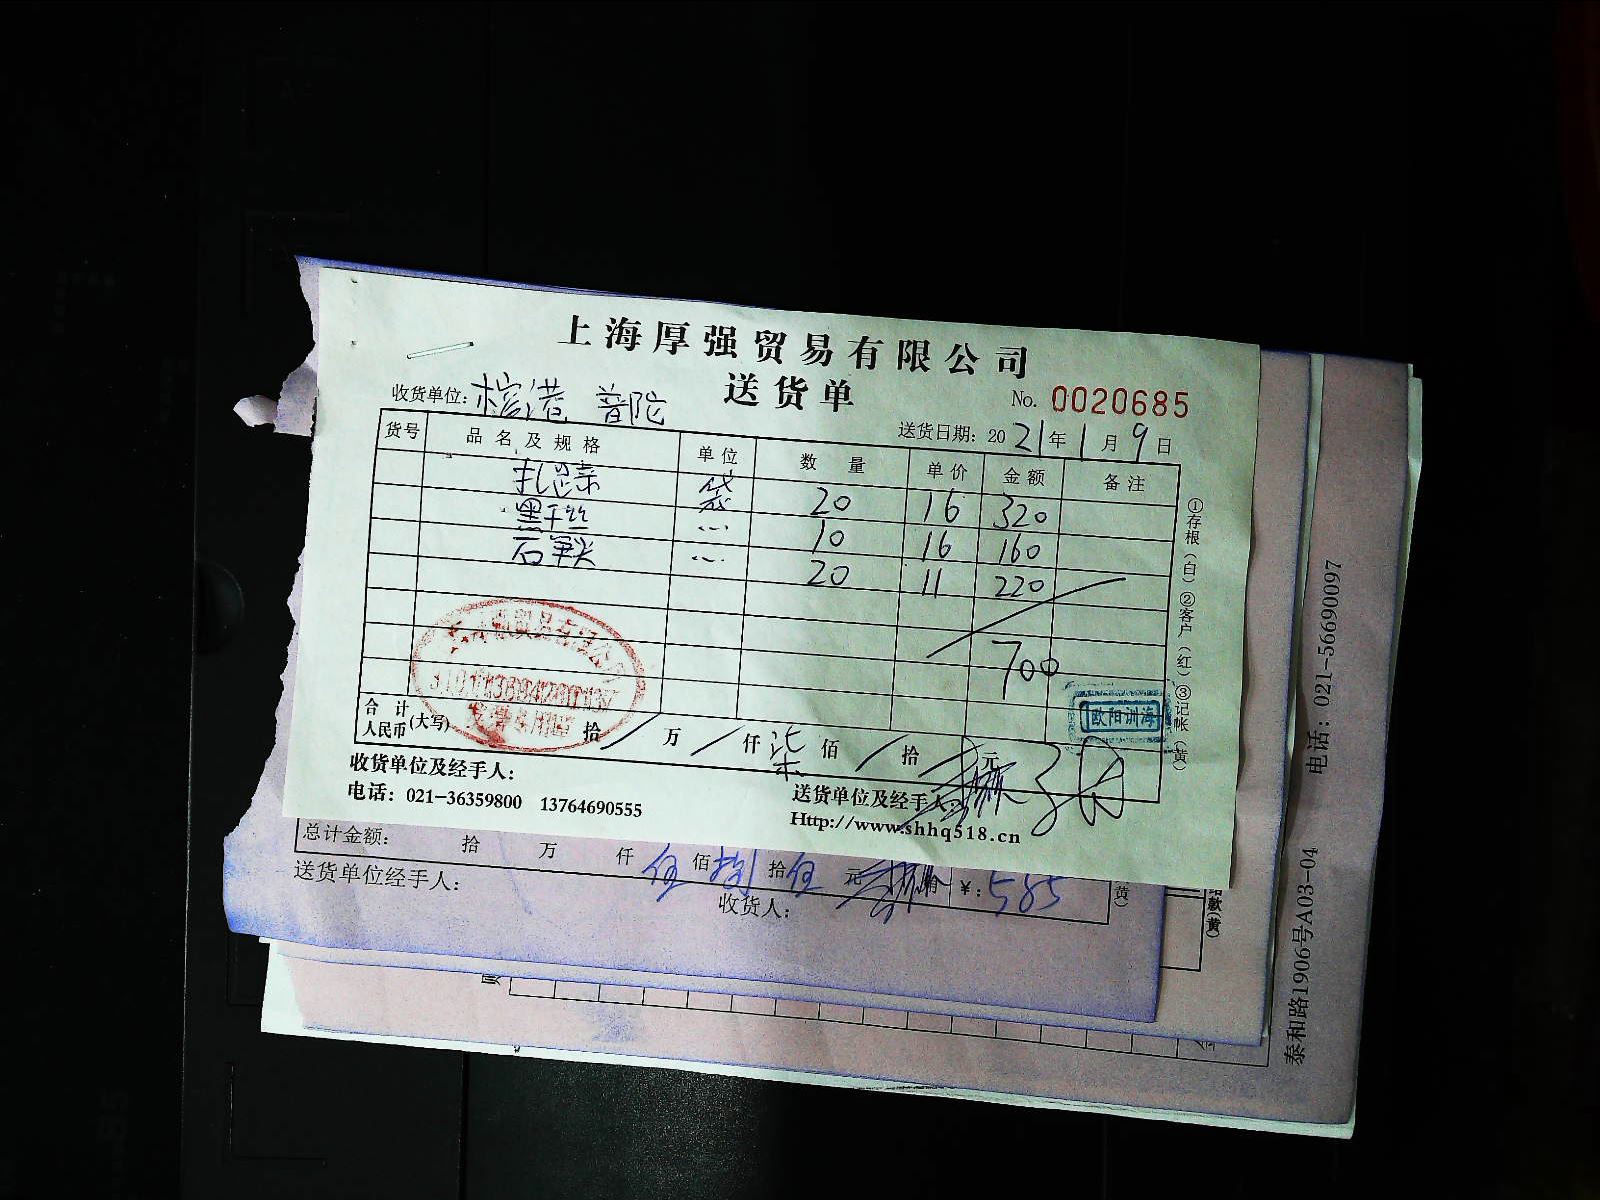 上海厚强贸易有限公司
送货单
No. 0020685
收货单位: 棕港 普陀
送货日期: 2021年1月9日
货号 品名及规格 单位 数量 单价 金额 备注
袋 20 16 320
黑干丝 〃 10 16 160
石笋尖 〃 20 11 220
700
合计人民币(大写) 拾/万/仟柒佰/拾/元
欧阳训海
①存根(白)②客户(红)③记帐(黄)
收货单位及经手人:
送货单位及经手人:
电话: 021-36359800 13764690555
Http://www.shhq518.cn
总计金额: 拾 万 仟 伍佰捌拾伍元 角 ¥: 585
送货单位经手人:
收货人:
泰和路1906号A03-04 电话: 021-56690097